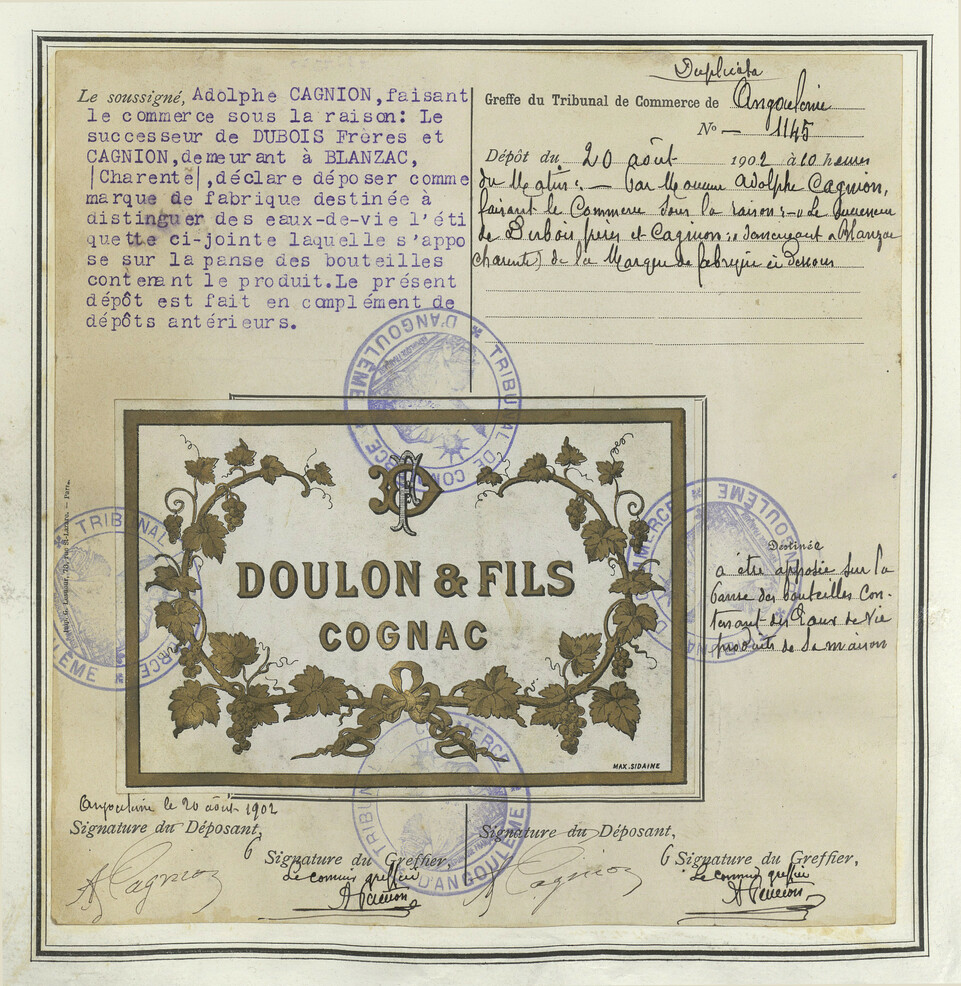 Le soussigné, Adolphe CAGNION, faisant
le commerce sous la raison: Le
successeur de DUBOIS Frères et
CAGNION, demeurant à BLANZAC,
|Charente|, déclare déposer comme
marque de fabrique destinée à
distinguer des eaux-de-vie l'éti
quette ci-jointe laquelle s'appo
se sur la panse des bouteilles
contenant le produit. Le présent
dépôt est fait en complément de
dépôts antérieurs.
Duplicata
Greffe du Tribunal de Commerce de Angoulême
No — 1145
Dépôt du 20 août 1902 à 10 heures
du Matin: — Par Monsieur Adolphe Cagnion,
faisant le Commerce sous la raison: — "Le successeur
de Dubois frères et Cagnion", demeurant à Blanzac
Charente) de la Marque de fabrique ci dessous
TRIBUNAL DE COMMERCE D'ANGOULÊME
DOULON & FILS
COGNAC
MAX. SIDAINE
TRIBUNAL DE COMMERCE D'ANGOULÊME
TRIBUNAL DE COMMERCE D'ANGOULÊME
Destinée
a être apposée sur la
Panse des bouteilles Con-
tenant des Eaux de Vie
produits de Sa maison
TRIBUNAL DE COMMERCE D'ANGOULÊME
Angoulême le 20 août 1902
Signature du Déposant,
A Cagnion
6 Signature du Greffier,
Le commis greffier
Signature du Déposant,
A Cagnion
6 Signature du Greffier,
Le commis greffier